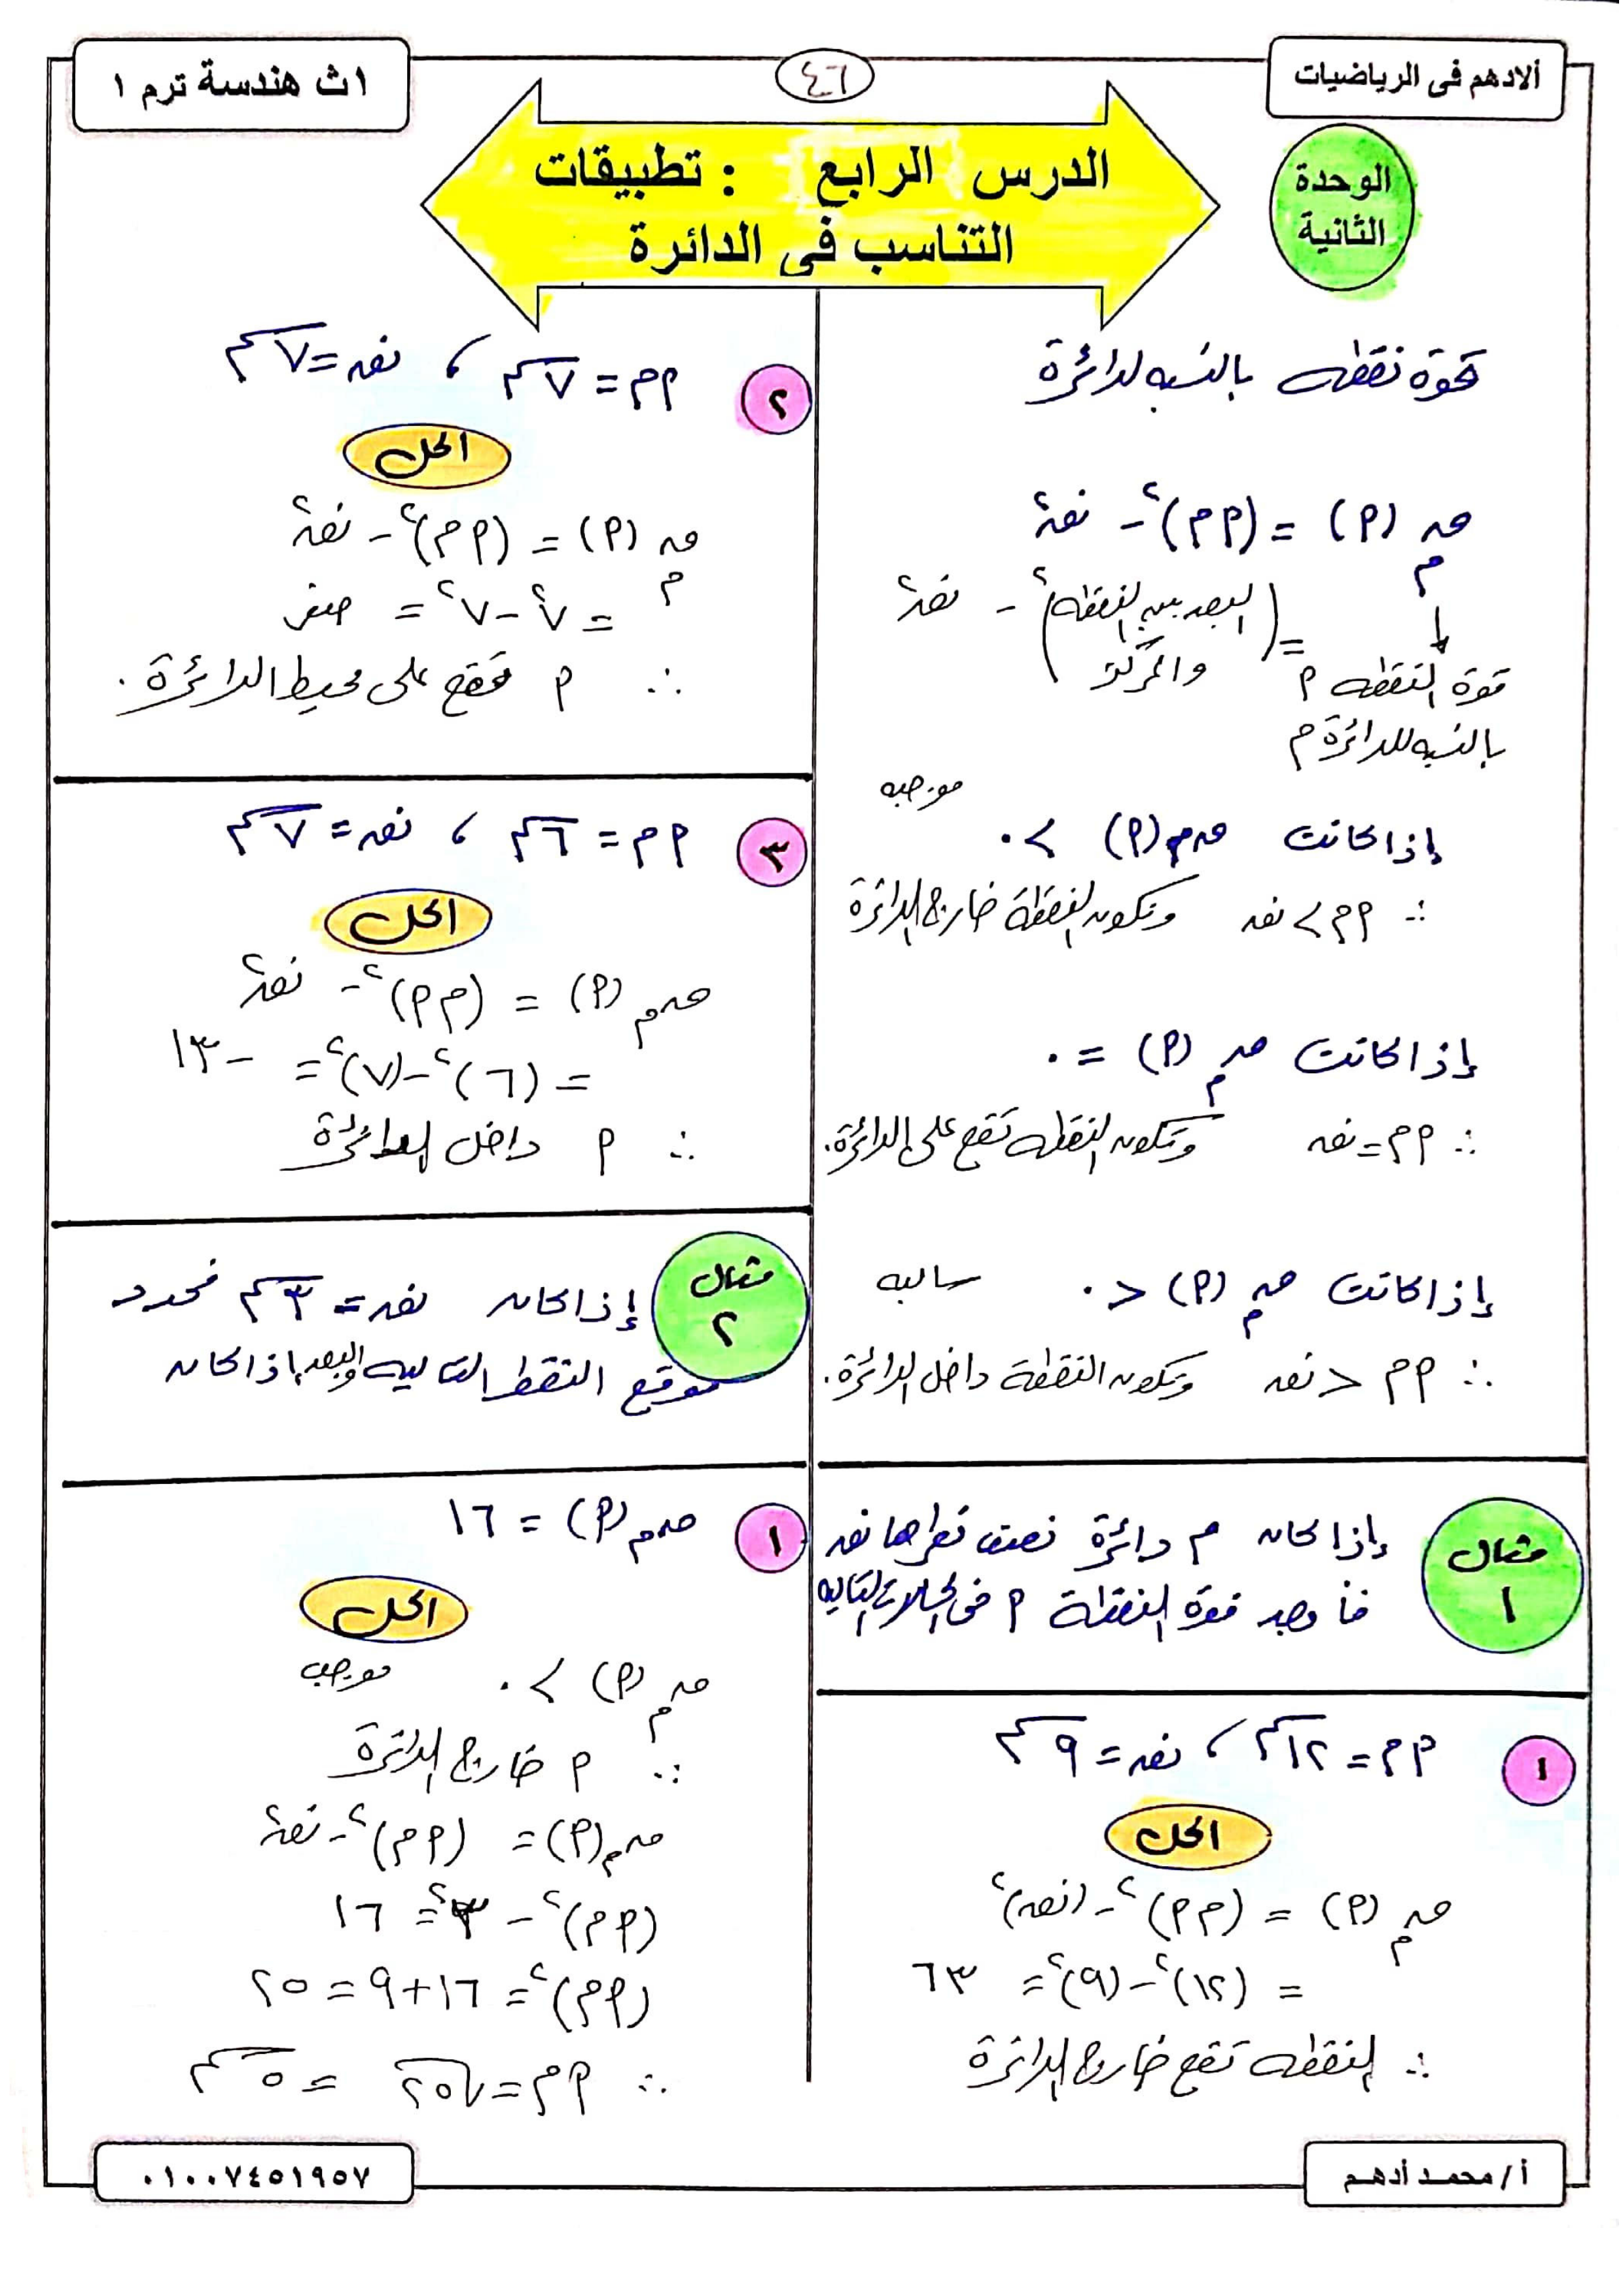 ألادهم فى الرياضيات
٤٦
١ث هندسة ترم ١
الوحدة
الثانية
الدرس الرابع : تطبيقات
التناسب فى الدائرة
قوة نقطه بالنسبه لدائرة
ق م (P) = (P م)² - نق²
= (البعد بين النقطه والمركز)² - نق²
قوة النقطه P
بالنسبه للدائرة م
موجبه
إذا كانت ق م (P) > ٠
∴ P م > نق وتكون النقطة خارج الدائرة
إذا كانت ق م (P) = ٠
∴ P م = نق وتكون النقطه تقع على الدائرة.
إذا كانت ق م (P) < ٠ سالبه
∴ P م < نق وتكون النقطة داخل الدائرة.
مثال
١
إذا كان م دائرة نصف قطرها نق
فأوجد قوة النقطة P فى الحالات التاليه
١
P م = ١٢ سم ، نق = ٩ سم
الحل
ق م (P) = (P م)² - (نق)²
= (١٢)² - (٩)² = ٦٣
∴ النقطه تقع خارج الدائرة
٢
P م = ٧ سم ، نق = ٧ سم
الحل
ق م (P) = (P م)² - نق²
= ٧² - ٧² = صفر
∴ P تقع على محيط الدائرة.
٣
P م = ٦ سم ، نق = ٧ سم
الحل
ق م (P) = (P م)² - نق²
= (٦)² - (٧)² = - ١٣
∴ P داخل الدائرة
مثال
٢
إذا كان نق = ٣ سم فحدد
موقع النقط التاليه والبعد إذا كان
١
ق م (P) = ١٦
الحل
ق م (P) > ٠ موجب
∴ P خارج الدائرة
ق م (P) = (P م)² - نق²
(P م)² - ٣² = ١٦
(P م)² = ١٦ + ٩ = ٢٥
∴ P م = √٢٥ = ٥ سم
أ / محمد أدهم
٠١٠٠٧٤٥١٩٥٧